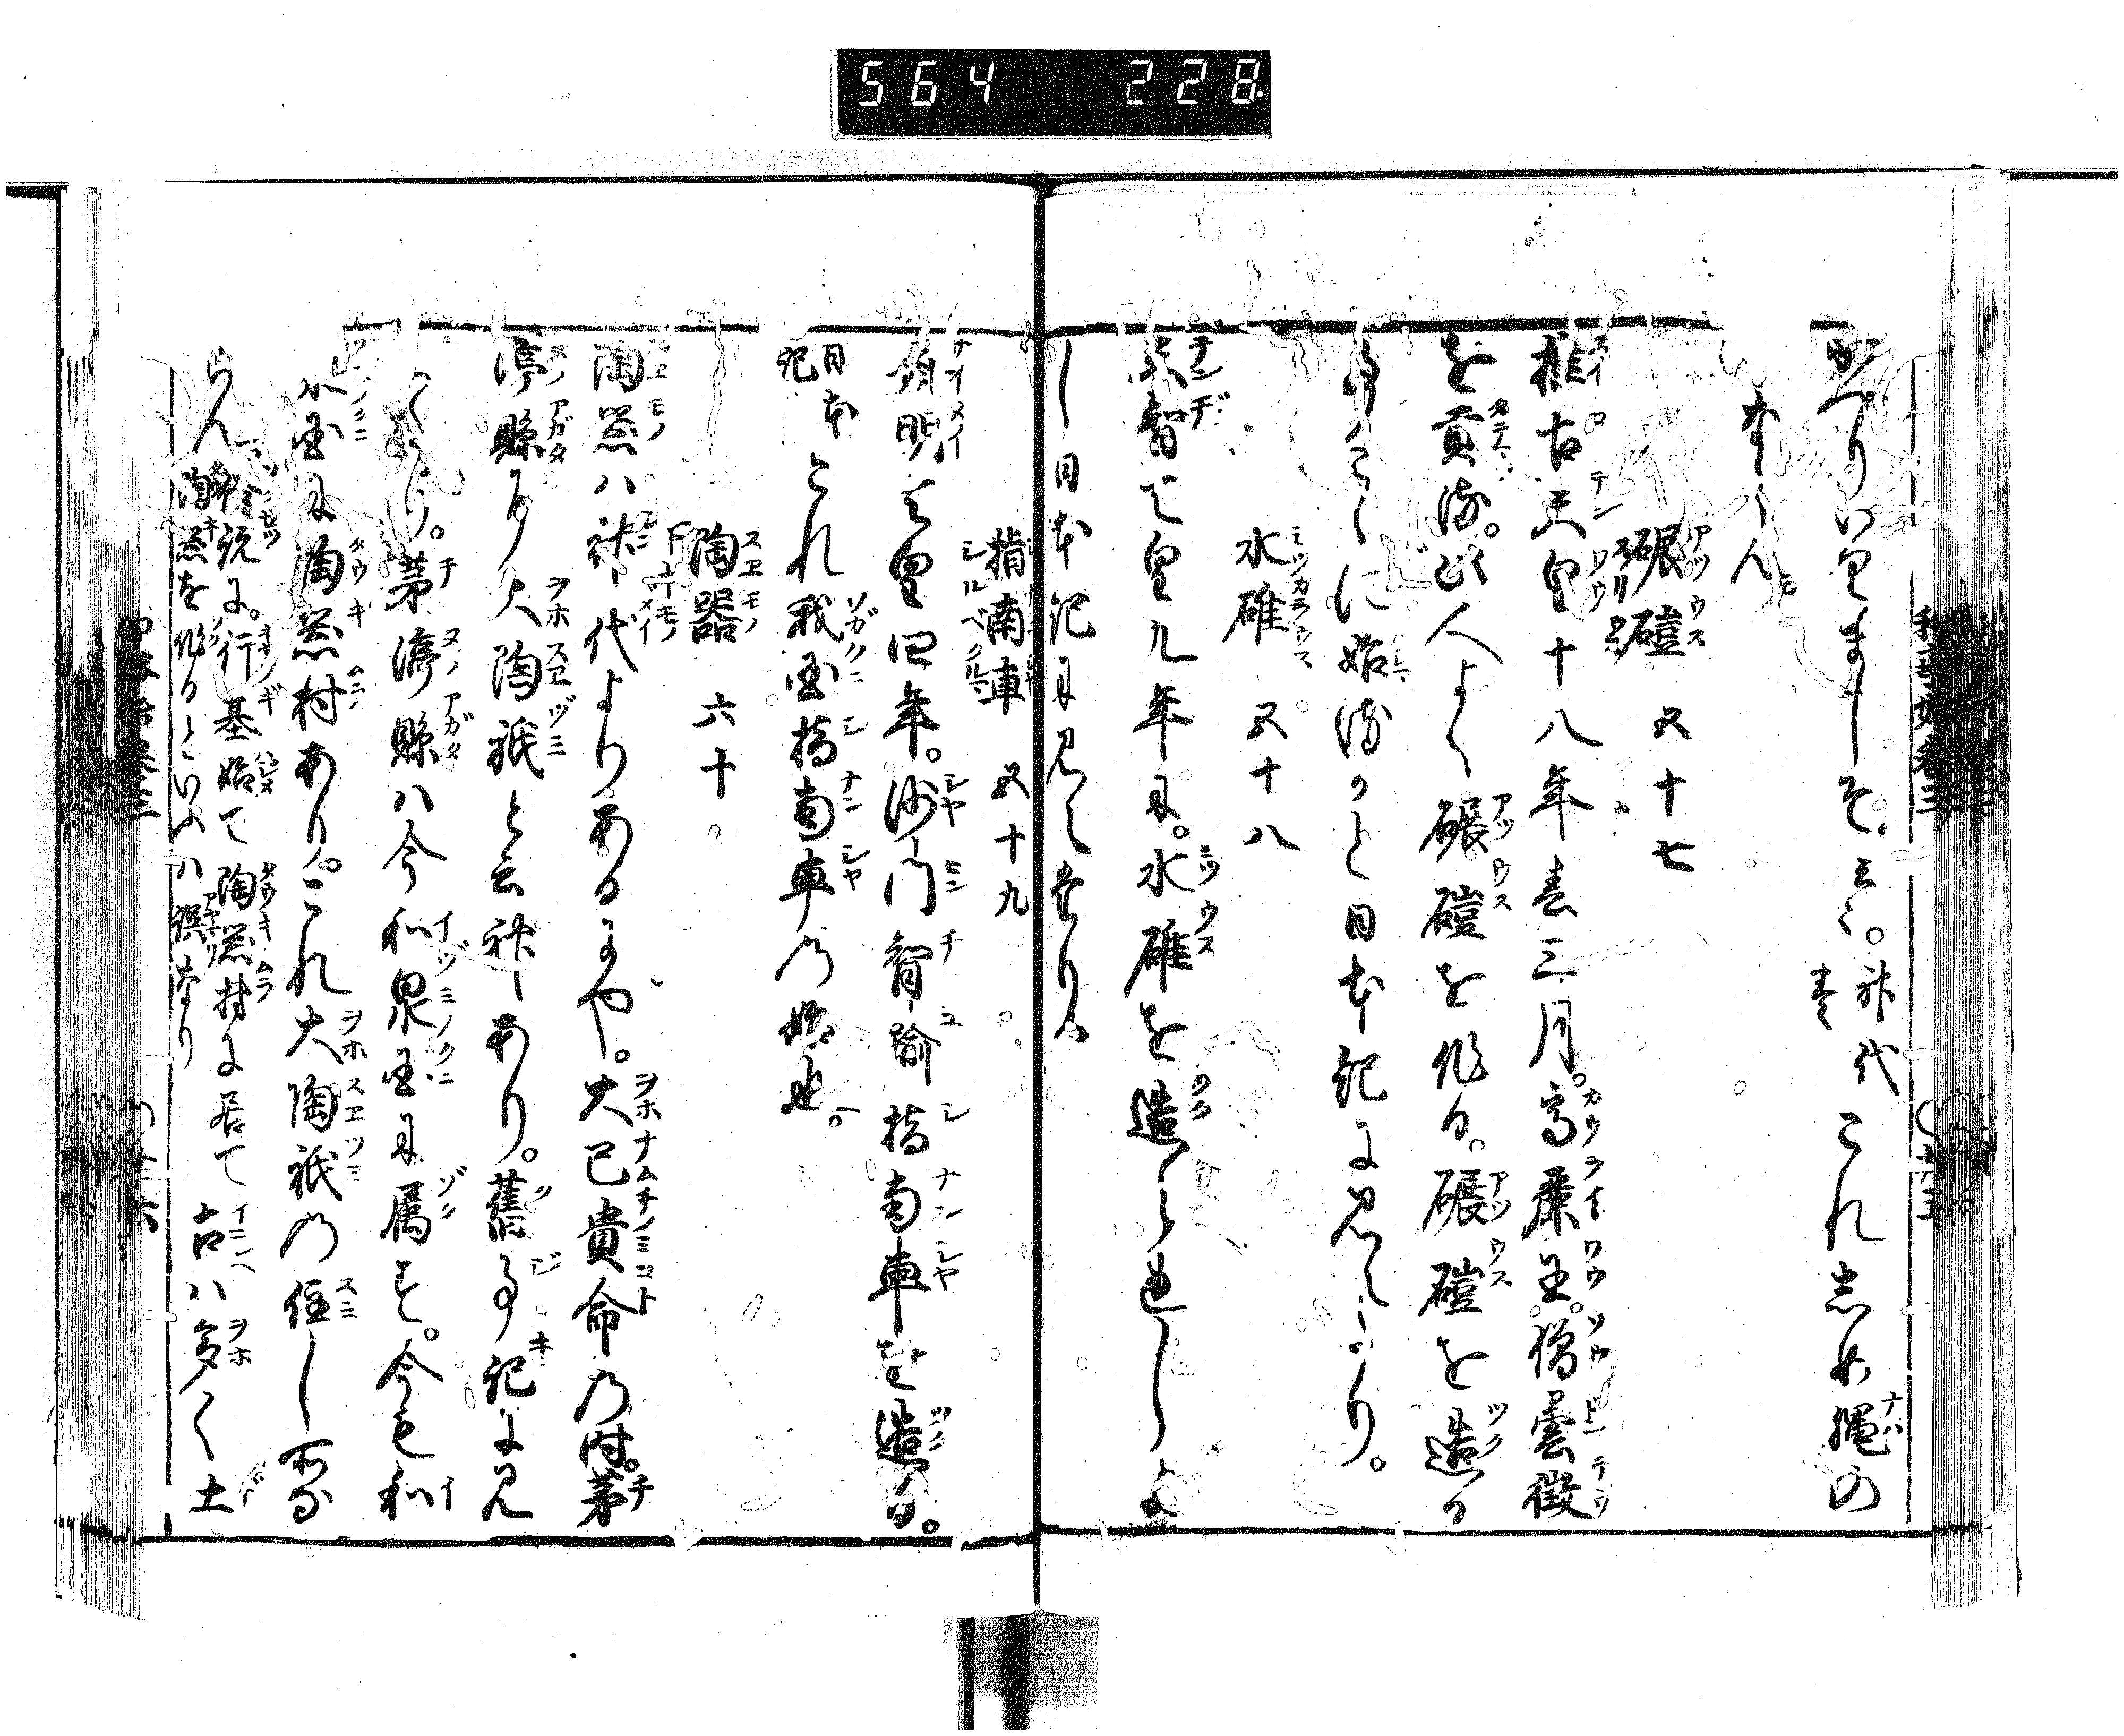 564 228
かへりいりましそと云云。神代巻 これしめ縄の
ならん。
碾磑 五十七
推古天皇十八年春三月。高麗王。僧曇徴
を貢す。此人よく碾磑を作る。碾磑を造る
事こゝに始るかと日本記に見えたり。
水碓 五十八
天智天皇九年に。水碓を造られしよ
し日本記に見えたり
指南車 五十九
齊明天皇四年。沙門智踰指南車を造る。
日本記 これ我国指南車の始也。
陶器 六十
陶器ハ神代よりあるにや。大已貴命の時。茅
渟縣に大陶祇と云神あり。舊事記に見
えたり。茅渟縣ハ今和泉国に属す。今も和
泉国に陶器村あり。これ大陶祇の住し所な
らん 一説に。行基始て陶器村に居て陶器を作るといふハ誤なり 古ハ多く土